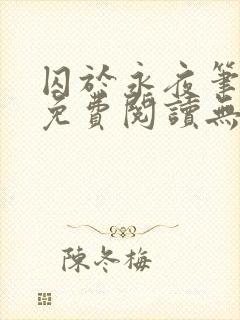 囚於永夜筆
免費閱讀無
陳冬梅